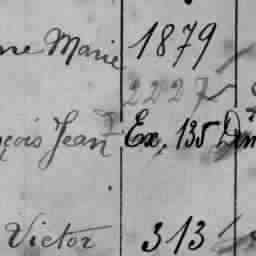 ne Marie 1879
2227
çois Jean Ex. 135 D
Victor 313